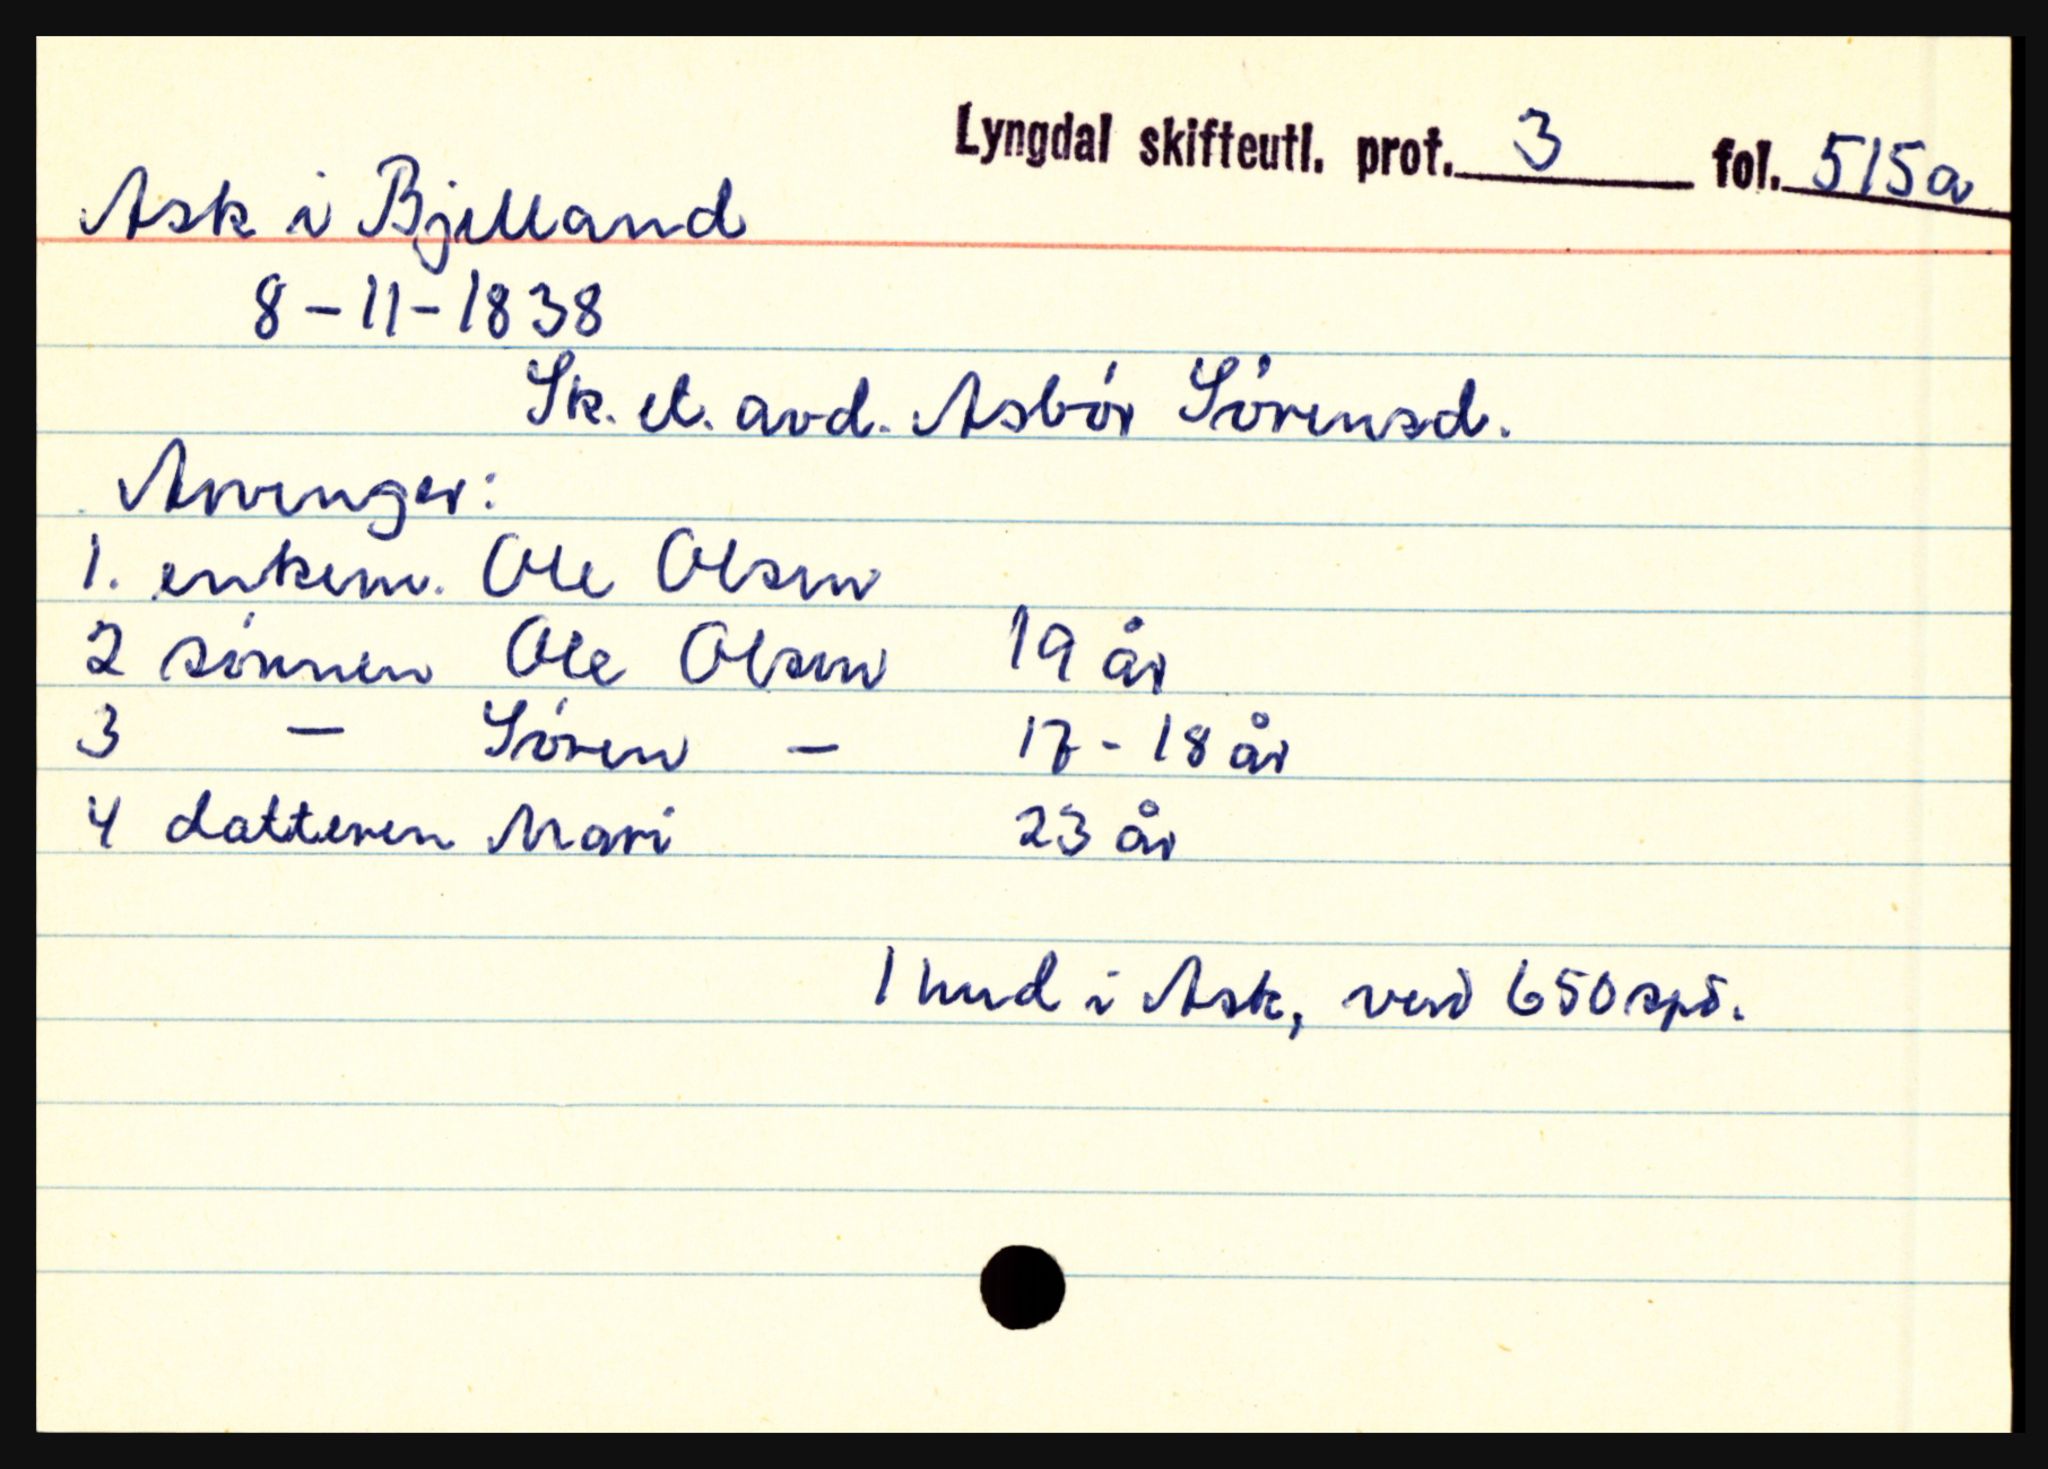 Lyngdal skifteutl. prot. 3 fol. 515a
Ask i Bjelland
8-11-1838
Sk. et. avd. Asbór Sórensd.
Arvinger:
1. enkem. Ole Olsen
2 sónnen Ole Olsen 19 år
3 — Sóren — 17-18 år
4 datteren Mari 23 år
1 hud i Ask, verd 650 spd.